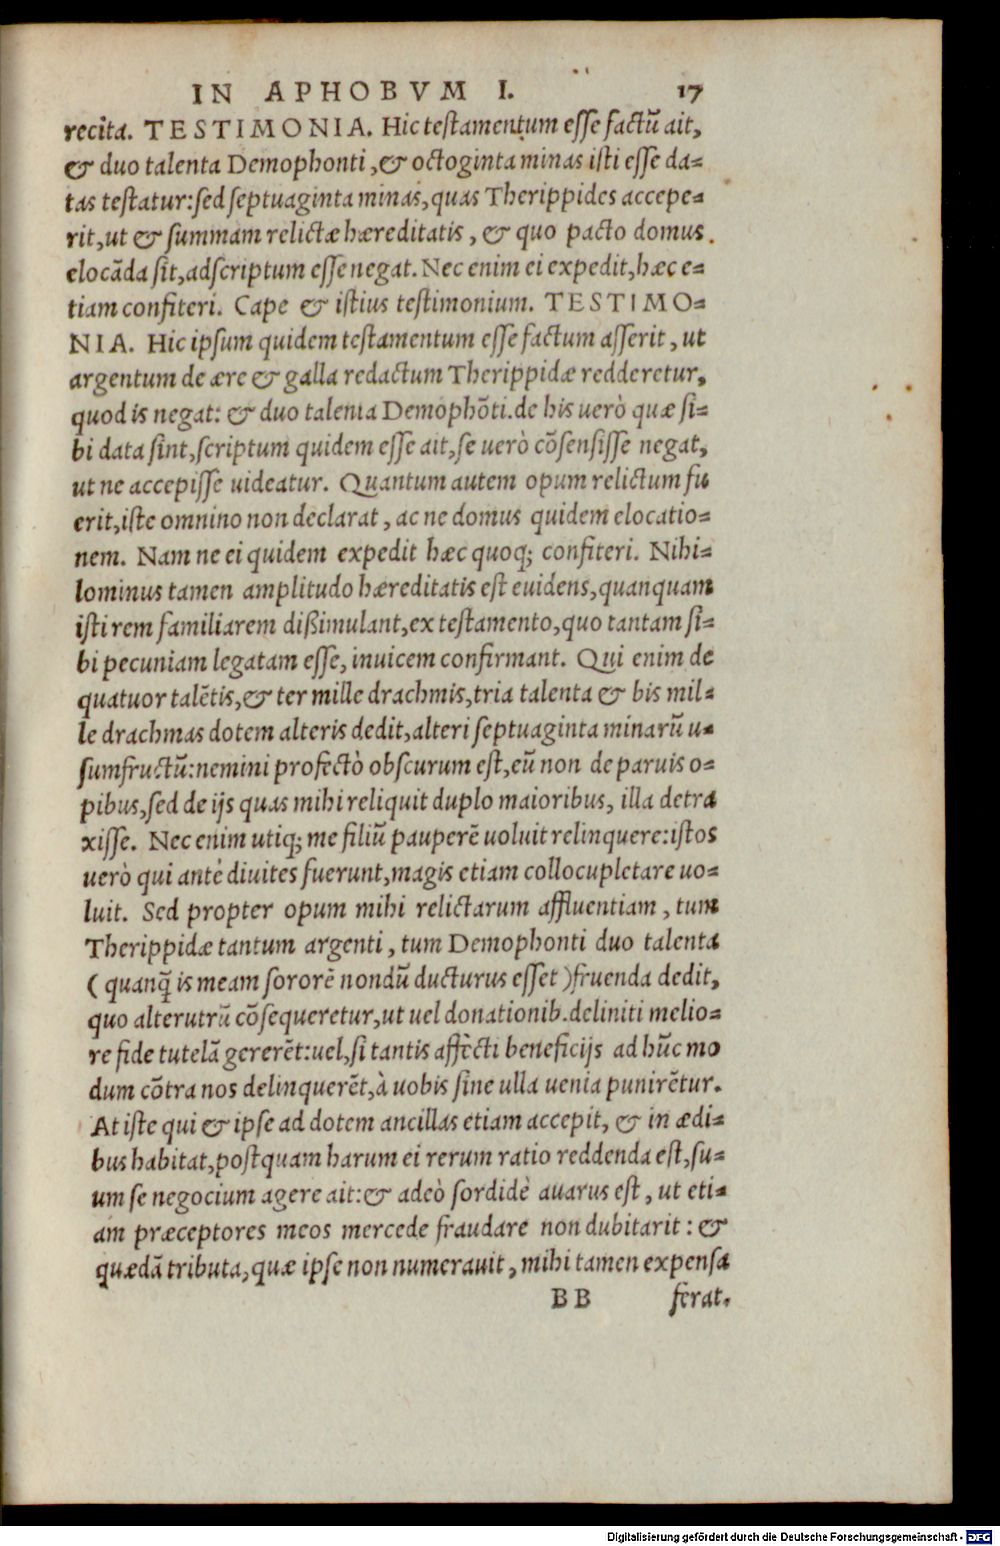 IN APHOBVM I. 17
recita. TESTIMONIA. Hic testamentum esse factũ ait,
& duo talenta Demophonti, & octoginta minas isti esse da=
tas testatur: sed septuaginta minas, quas Therippides accepe=
rit, ut & summam relictæ hæreditatis, & quo pacto domus
elocãda sit, adscriptum esse negat. Nec enim ei expedit, hæc e=
tiam confiteri. Cape & istius testimonium. TESTIMO=
NIA. Hic ipsum quidem testamentum esse factum asserit, ut
argentum de ære & galla redactum Therippidæ redderetur,
quod is negat: & duo talenta Demophõti. de his uerò quæ si=
bi data sint, scriptum quidem esse ait, se uerò cõsensisse negat,
ut ne accepisse uideatur. Quantum autem opum relictum fu
erit, iste omnino non declarat, ac ne domus quidem elocatio=
nem. Nam ne ei quidem expedit hæc quoq; confiteri. Nihi=
lominus tamen amplitudo hæreditatis est euidens, quanquam
isti rem familiarem dißimulant, ex testamento, quo tantam si=
bi pecuniam legatam esse, inuicem confirmant. Qui enim de
quatuor talẽtis, & ter mille drachmis, tria talenta & bis mil=
le drachmas dotem alteris dedit, alteri septuaginta minarũ u=
sumfructũ: nemini profectò obscurum est, eũ non de paruis o=
pibus, sed de ijs quas mihi reliquit duplo maioribus, illa detra
xisse. Nec enim utiq; me filiũ pauperẽ uoluit relinquere: istos
uerò qui antè diuites fuerunt, magis etiam collocupletare uo=
luit. Sed propter opum mihi relictarum affluentiam, tum
Therippidæ tantum argenti, tum Demophonti duo talenta
(quanq̃ is meam sororẽ nondũ ducturus esset) fruenda dedit,
quo alterutrũ cõsequeretur, ut uel donationib. deliniti melio=
re fide tutelã gererẽt: uel, si tantis affecti beneficijs ad hũc mo
dum cõtra nos delinquerẽt, à uobis sine ulla uenia punirẽtur.
At iste qui & ipse ad dotem ancillas etiam accepit, & in ædi=
bus habitat, postquam harum ei rerum ratio reddenda est, su=
um se negocium agere ait: & adeò sordidè auarus est, ut eti=
am præceptores meos mercede fraudare non dubitarit: &
quædã tributa, quæ ipse non numerauit, mihi tamen expensa
BB ferat.
Digitalisierung gefördert durch die Deutsche Forschungsgemeinschaft - DFG